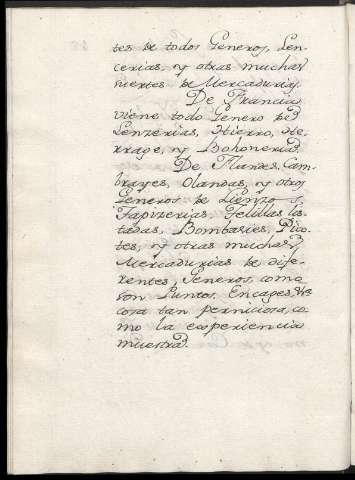 tes de todos Generos, Len-
cerias, y otras muchas
suertes de Mercadurias.
De Francia
viene todo Genero de
Lenzerias, Hierro, He-
rrage, y Bohoneria.
De Flandes, Cam-
brayes, Olandas, y otros
Generos de Lienzos,
Tapizerias, Telillas lis-
tadas, Bombasies, Pico-
tes, y otras muchas
Mercadurias de dife-
rentes Generos, como
son Puntos, Encages,
cosa tan perniciosa, co-
mo la experiencia
muestra.